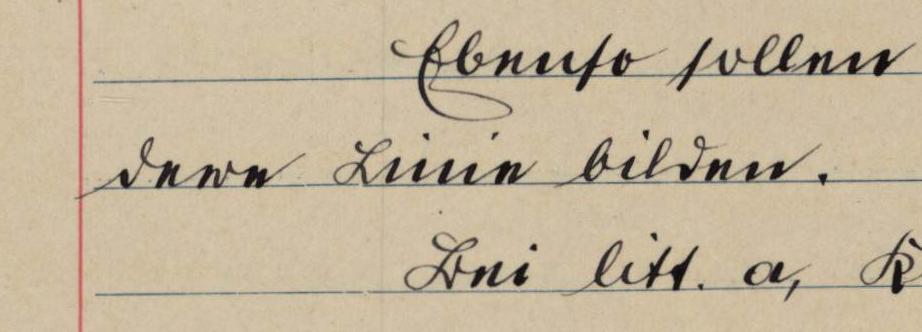 Ebenso sollen
dere Linie bilden.
Bei litt. a,